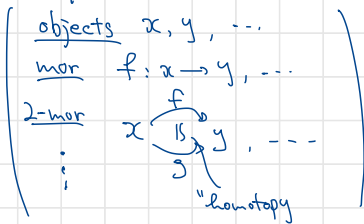 objects x, y, ...
mor f : x → y, ...
2-mor x f g y, ---
"homotopy